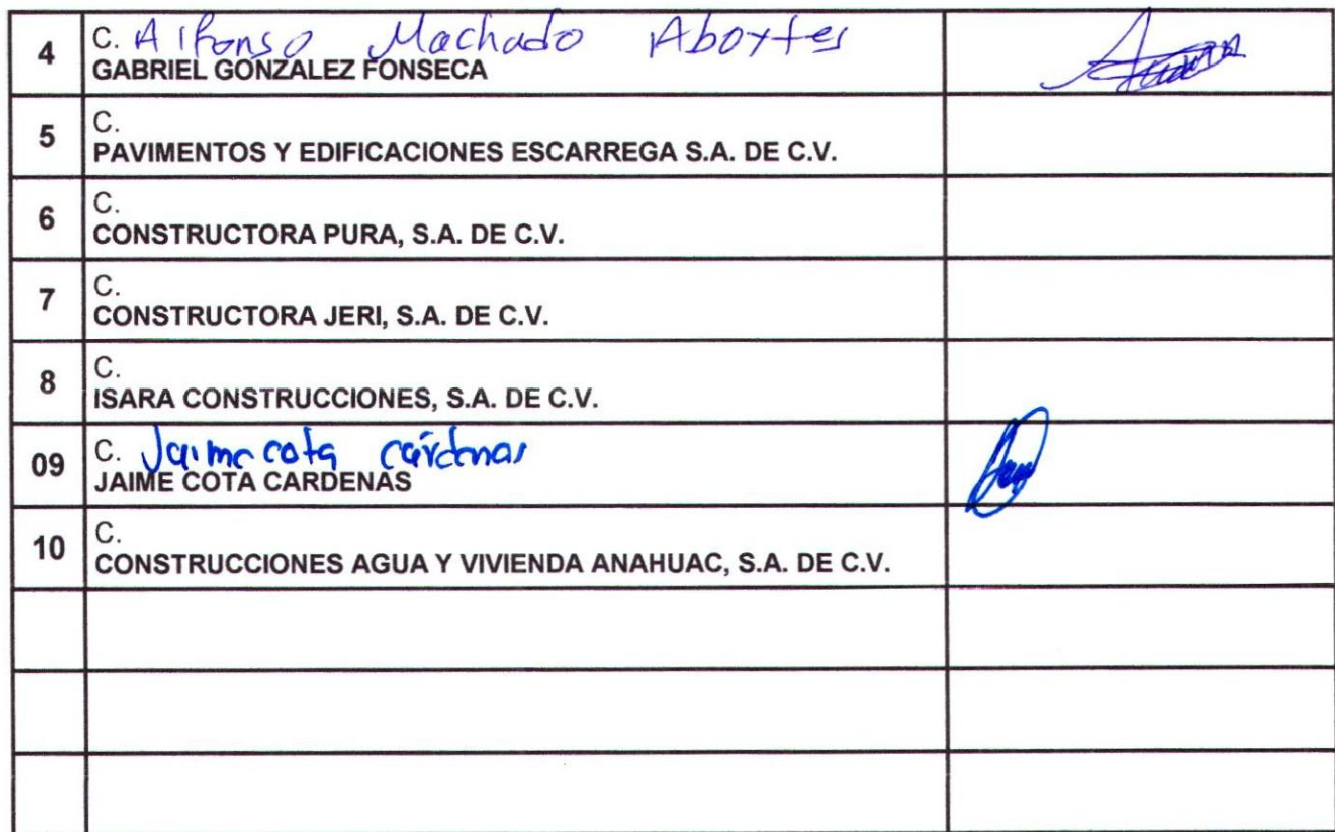 4
C. Alfonso Machado
GABRIEL GONZALEZ FONSECA
5
C.
PAVIMENTOS Y EDIFICACIONES ESCARREGA S.A. DE C.V.
6
C.
CONSTRUCTORA PURA, S.A. DE C.V.
7
C.
CONSTRUCTORA JERI, S.A. DE C.V.
8
C.
ISARA CONSTRUCCIONES, S.A. DE C.V.
09
C. Jaime cota cárdenas
JAIME COTA CARDENAS
10
C.
CONSTRUCCIONES AGUA Y VIVIENDA ANAHUAC, S.A. DE C.V.